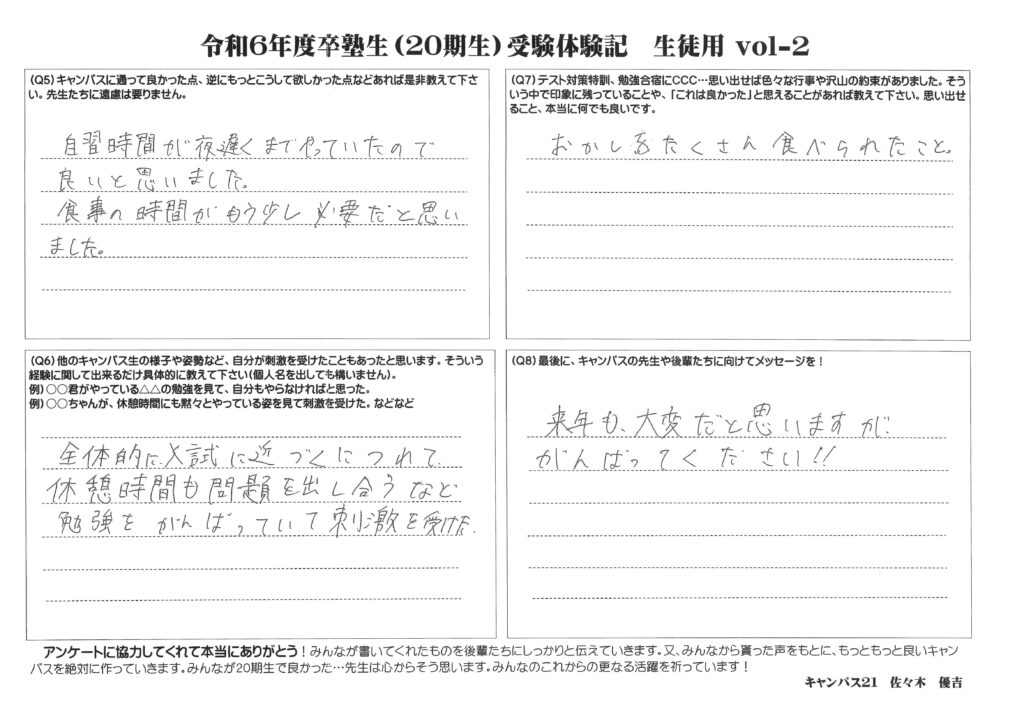 令和6年度卒塾生（20期生）受験体験記　生徒用 vol-2
（Q5）キャンパスに通って良かった点、逆にもっとこうして欲しかった点などあれば是非教えて下さ
い。先生たちに遠慮は要りません。
自習時間が夜遅くまでやっていたので
良いと思いました。
食事の時間がもう少し必要だと思い
ました。
（Q7）テスト対策特訓、勉強合宿にCCC…思い出せば色々な行事や沢山の約束がありました。そう
いう中で印象に残っていることや、「これは良かった」と思えることがあれば教えて下さい。思い出せ
ること、本当に何でも良いです。
おかしをたくさん食べられたこと。
（Q6）他のキャンパス生の様子や姿勢など、自分が刺激を受けたこともあったと思います。そういう
経験に関して出来るだけ具体的に教えて下さい（個人名を出しても構いません）。
例）○○君がやっている△△の勉強を見て、自分もやらなければと思った。
例）○○ちゃんが、休憩時間にも黙々とやっている姿を見て刺激を受けた。などなど
全体的に、入試に近づくにつれて
休憩時間も問題を出し合うなど
勉強をがんばっていて刺激を受けた。
（Q8）最後に、キャンパスの先生や後輩たちに向けてメッセージを！
来年も、大変だと思いますが、
がんばってください!!
アンケートに協力してくれて本当にありがとう！みんなが書いてくれたものを後輩たちにしっかりと伝えていきます。又、みんなから貰った声をもとに、もっともっと良いキャン
パスを絶対に作っていきます。みんなが20期生で良かった…先生は心からそう思います。みんなのこれからの更なる活躍を祈っています！
キャンパス21　佐々木　優吉